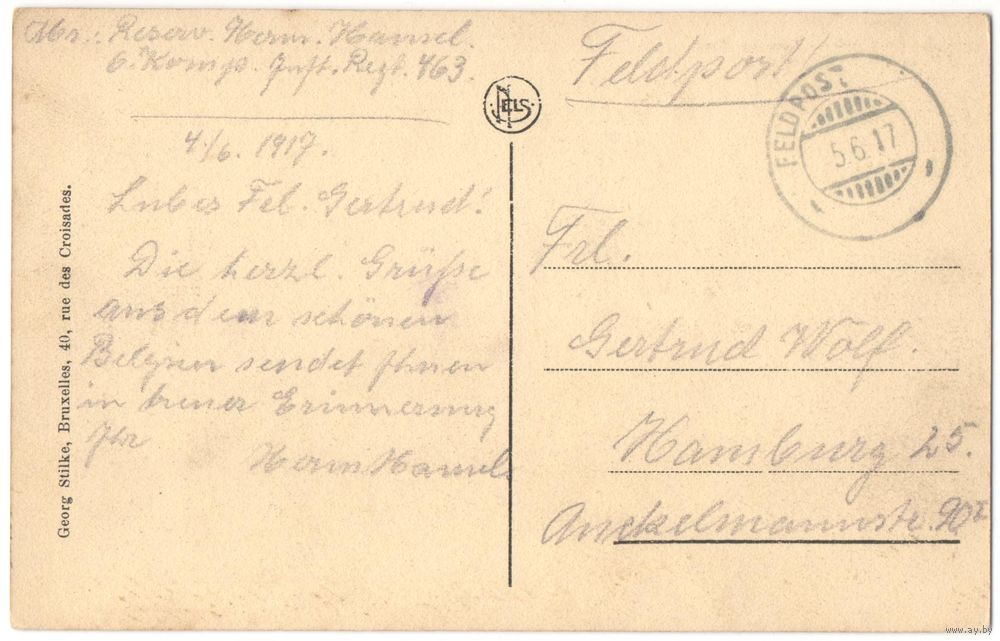 Abs.: Reserv. Herm. Hansel.
6. Komp. Inft. Regt. 463.
4/6. 1917.
Liebes Frl. Gertrud!
Die herzl. Grüße
aus dem schönen
Belgien sendet Ihnen
in treuer Erinnerung
Ihr
Herm Hansel.
Georg Stilke, Bruxelles, 40, rue des Croisades.
NELS
Feldpost
FELDPOST
5.6.17
Frl.
Gertrud Wolf.
Hamburg 25.
Anckelmannstr. 90 I
www.ay.by